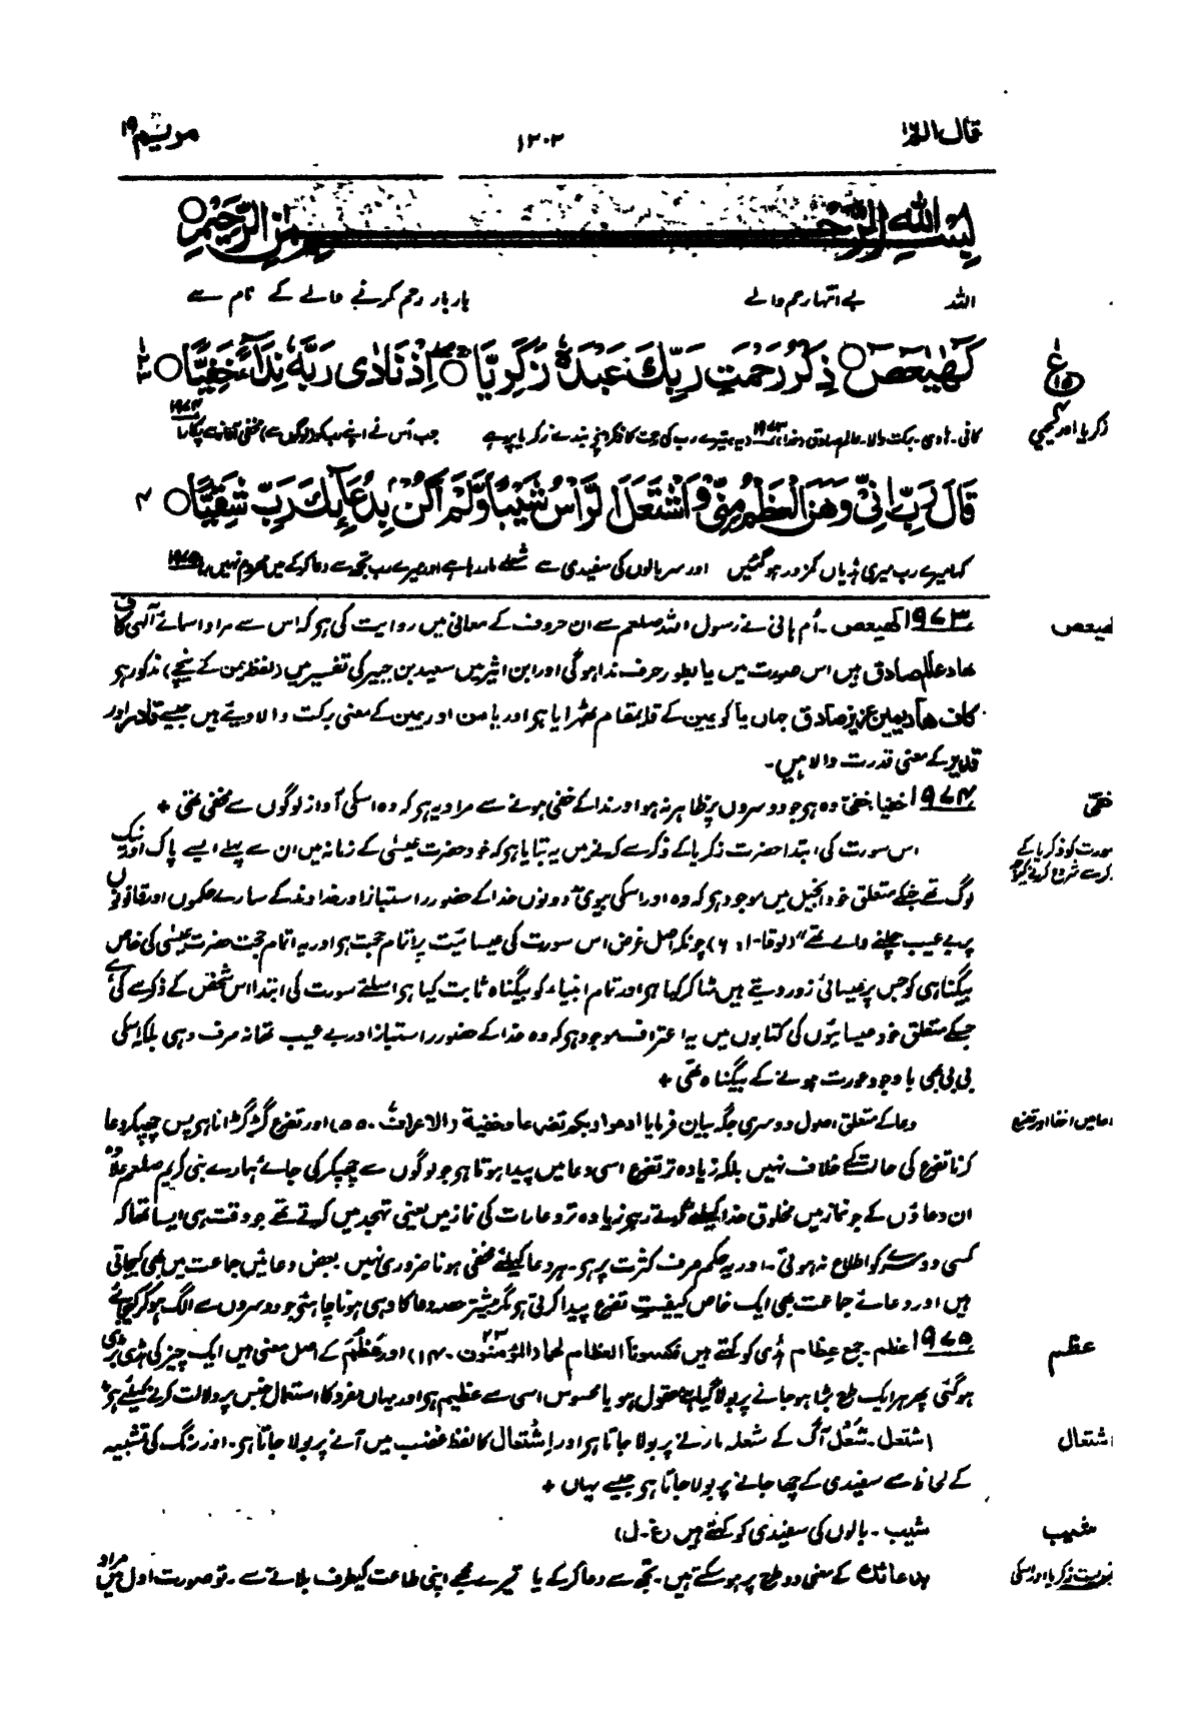 قال الم ١٦
١٢٠٢
مریم ١٩
بِسْمِ اللهِ الرَّحْمٰنِ الرَّحِيْمِ
اللہ بے انتہا رحم والے بار بار رحم کرنے والے کے نام سے
كٓهٰيٰعٓصٓ ذِكْرُ رَحْمَتِ رَبِّكَ عَبْدَهٗ زَكَرِيَّا اِذْ نَادٰى رَبَّهٗ نِدَآءً خَفِيًّا
زکریا اور یحییٰ
کافی۔ ہادی۔ برکت والا۔ عالم صادق خدا ١٩٧٣ یہ تیرے رب کی رحمت کا ذکر اپنے بندے زکریا پر ہے جب اُس نے اپنے رب کو (لوگوں سے) مخفی آواز سے پکارا ١٩٧٤
قَالَ رَبِّ اِنِّيْ وَهَنَ الْعَظْمُ مِنِّيْ وَاشْتَعَلَ الرَّاْسُ شَيْبًا وَّلَمْ اَكُنْۢ بِدُعَآئِكَ رَبِّ شَقِيًّا ٤
کہا میرے رب میری ہڈیاں کمزور ہو گئیں اور سر بالوں کی سفیدی سے شعلے مار رہا ہے اور میرے رب تجھ سے دعا کر کے میں محروم نہیں رہا ١٩٧٥
کھیعص
١٩٧٣ کھیعص۔ اُم ہانی نے رسول اللہ صلعم سے ان حروف کے معانی میں روایت کی ہو کہ اس سے مراد اسمائے الٰہی کاف
ھاد عالم صادق ہیں اس صورت میں یا بطور حرف ندا ہو گی اور ابن اثیر میں سعید بن جبیر کی تفسیر میں (لفظ یمن کے نیچے) مذکور ہو
کاف ھاد یمین عزیز صادق جہاں یا کو یمین کے قائمقام ٹھرایا ہو اور یامن اور یمین کے معنی برکت والا دیئے ہیں جیسے قادر اور
قدیر کے معنی قدرت والا ہیں۔
خفی
١٩٧٤ خفیا خفی وہ ہو جو دوسروں پر ظاہر نہ ہو اور ندا کے خفی ہونے سے مراد یہ ہو کہ وہ اسکی آواز لوگوں سے مخفی تھی +
سورت کو ذکر یا کے
ذکر سے شروع کرنے کی وجہ
اس سورت کی ابتدا حضرت زکریا کے ذکر سے کرنے میں یہ بتایا ہو کہ خود حضرت عیسیٰ کے زمانہ میں ان سے پہلے ایسے پاک اور نیک
لوگ تھے جنکے متعلق خود انجیل میں موجود ہو کہ وہ اور اسکی بیوی "دونوں خدا کے حضور راستباز اور خداوند کے سارے حکموں اور قانونوں
پر بے عیب چلنے والے تھے" (لوقا-١: ٦) چونکہ اصل غرض اس سورت کی عیسائیت پر اتمام حجت ہو اور یہ اتمام حجت حضرت عیسٰی کی خاص
بیگناہی کو جس پر عیسائی زور دیتے ہیں مٹا کر کیا ہو اور تمام انبیاء کو بیگناہ ثابت کیا ہو اسلئے سورت کی ابتدا اس شخص کے ذکر سے کی ہے
جسکے متعلق خود عیسائیوں کی کتابوں میں یہ اعتراف موجود ہو کہ وہ خدا کے حضور راستباز اور بے عیب تھا نہ صرف وہی بلکہ اسکی
بی بی بھی باوجود عورت ہونے کے بیگناہ تھی +
دعا میں اخفا اور تضرع
دعا کے متعلق اصول دوسری جگہ بیان فرمایا ادعوا ربکم تضرعا وخفیة (الاعراف- ٥٥) اور تضرع گڑ گڑانا ہو پس چھپکر دعا
کرنا تضرع کی حالت کے خلاف نہیں بلکہ زیادہ تر تضرع اسی دعا میں پیدا ہوتا ہو جو لوگوں سے چھپکر کی جائے ہمارے نبی کریم صلعم علاوہ
ان دعاؤں کے جو نماز میں مخلوق خدا کیلئے کرتے رہے زیادہ تر دعا رات کی نماز میں یعنی تہجد میں کرتے تھے جو وقت ہی ایسا تھا کہ
کسی دوسرے کو اطلاع نہ ہوتی۔ اور یہ حکم صرف کثرت پر ہو۔ ہر دعا کیلئے مخفی ہونا ضروری نہیں۔ بعض دعائیں جماعت میں بھی کیجاتی
ہیں اور دعائے جماعت بھی ایک خاص کیفیتِ تضرع پیدا کرتی ہو مگر بیشتر حصہ دعا کا وہی ہونا چاہئے جو دوسروں سے الگ ہو کر کیجائے
عظم
١٩٧٥ عظم۔ جمع عِظام ہڈی کو کہتے ہیں فکسونا العظام لحما (المؤمنون ٢٣-١٤) اور عَظُمَ کے اصل معنی ہیں ایک چیز کی ہڈی بڑی
ہو گئی پھر ہر ایک طرح بڑا ہو جانے پر بولا گیا ہے معقول ہو یا محسوس اسی سے عظیم ہو اور یہاں مفرد کا استعمال جنس پر دلالت کرنے کیلئے ہو
اشتعال
اشتعل۔ شَعْل آگ کے شعلہ مارنے پر بولا جاتا ہو اور اِشتعال کا لفظ غضب میں آنے پر بولا جاتا ہو۔ اور رنگ کی تشبیہ
کے لحاظ سے سفیدی کے چھا جانے پر بولا جاتا ہو جیسے یہاں +
شیب
شیب۔ بالوں کی سفیدی کو کہتے ہیں (غ-ل)
نبوت زکریا اور اسکی
بدعائک کے معنی دو طرح پر ہو سکتے ہیں۔ تجھ سے دعا کر کے یا تیرے مجھے اپنی طاعت کیطرف بلانے سے۔ تو صورت اول میں مراد